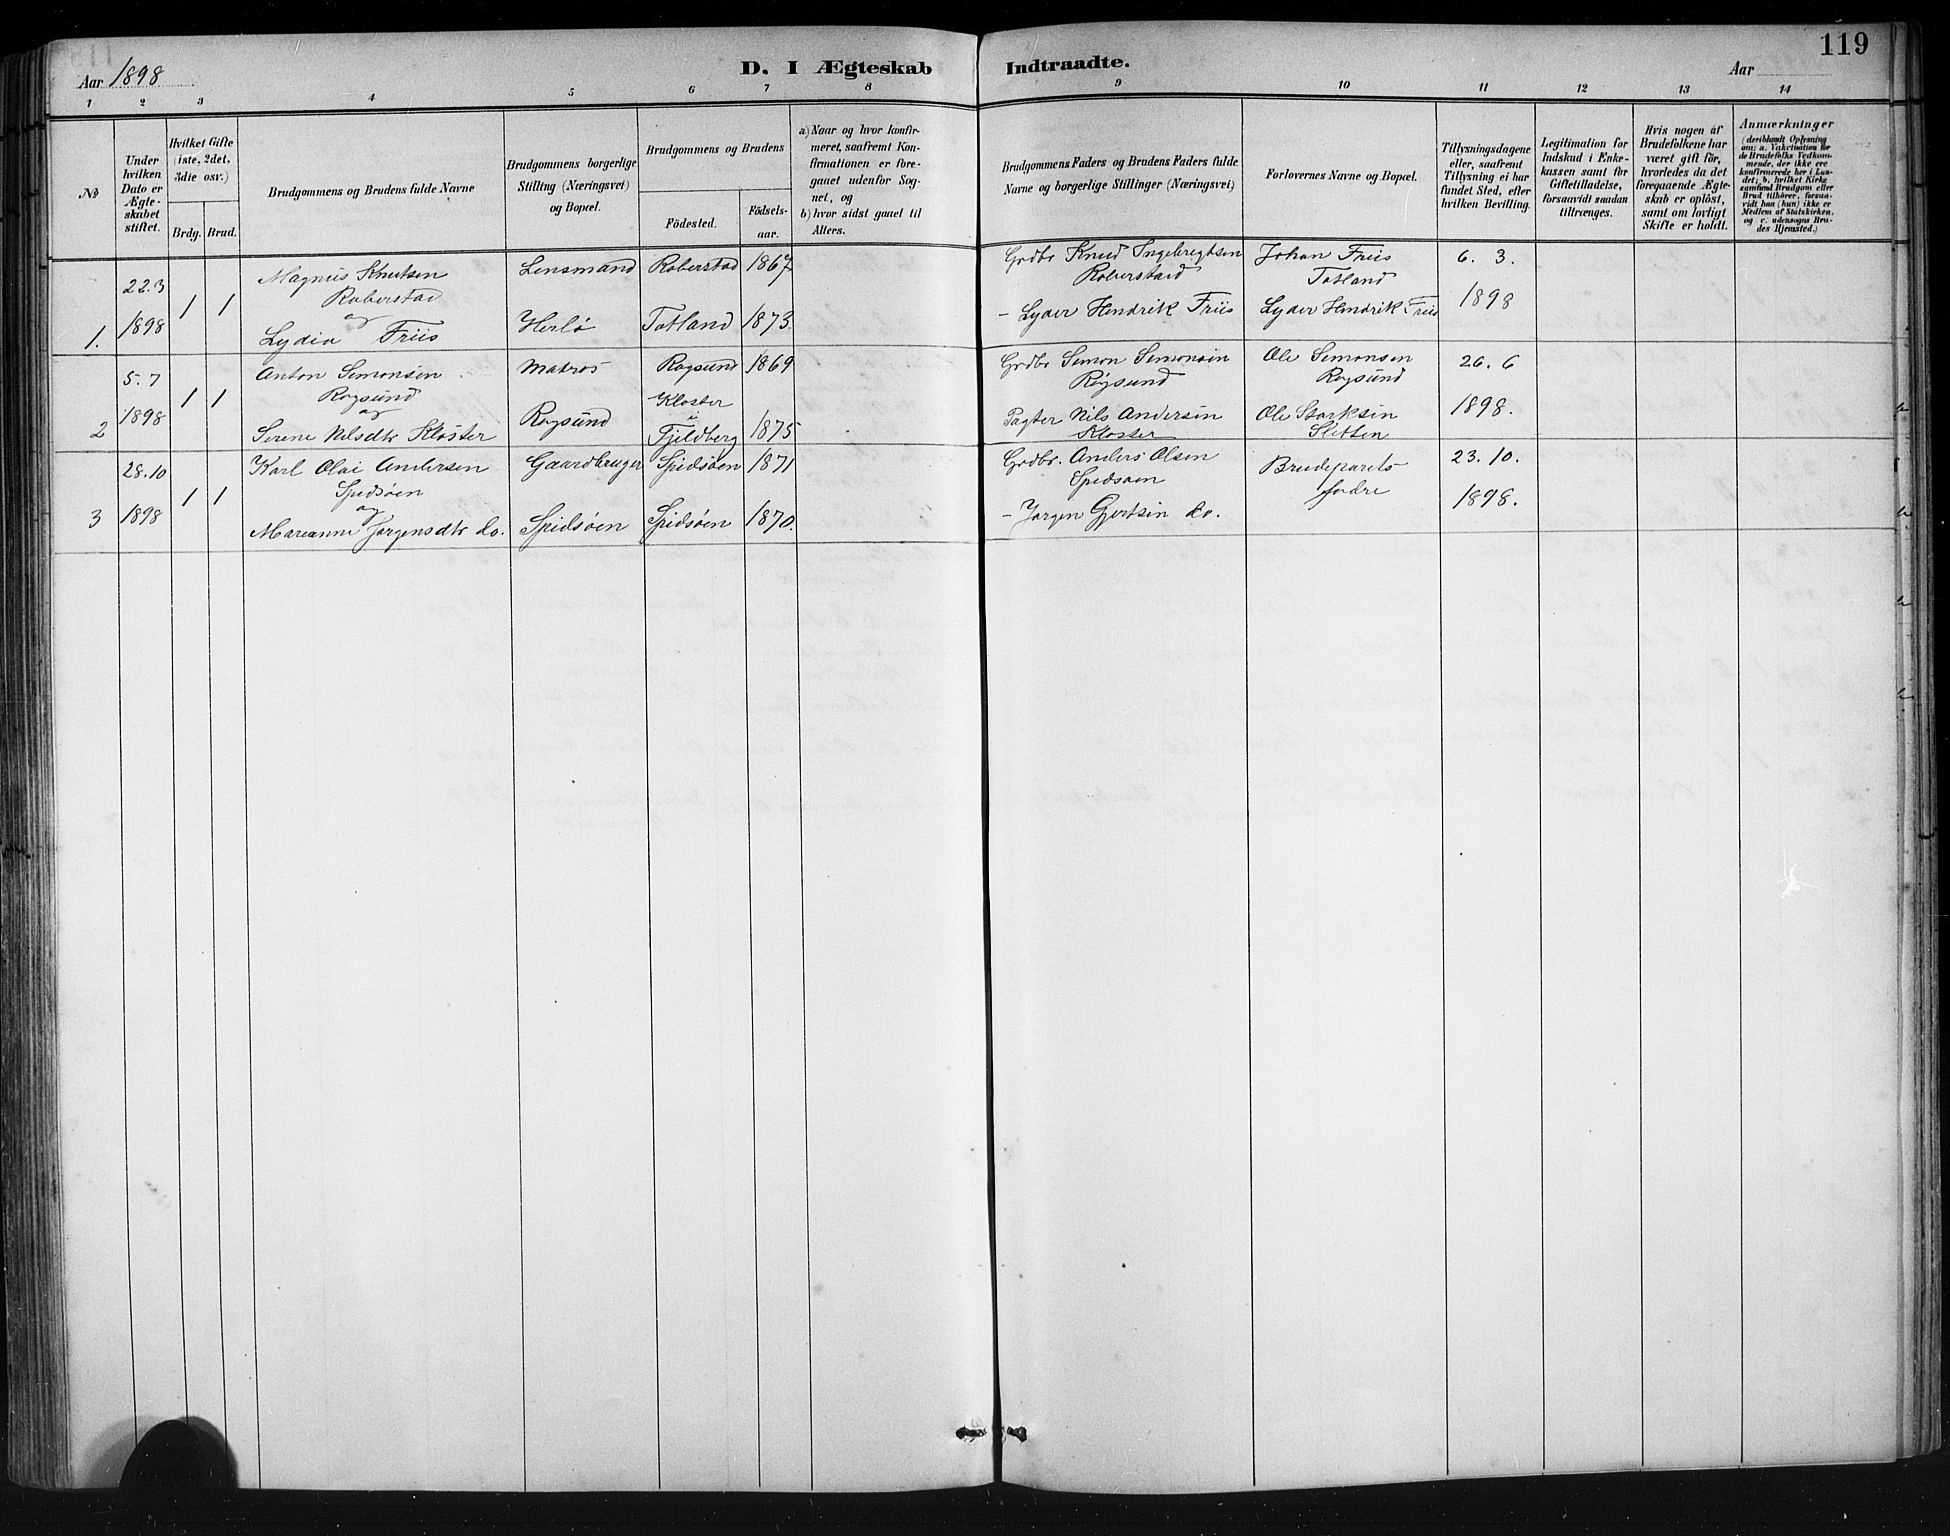 119
Aar 1898
D. I Ægteskab Indtraadte.
Aar
1 2 3 4 5 6 7 8 9 10 11 12 13 14
№
Under hvilken Dato er Ægteskabet stiftet.
Hvilket Gifte (1ste, 2det, 3die osv.)
Brdg. Brud.
Brudgommens og Brudens fulde Navne
Brudgommens borgerlige Stilling (Næringsvei) og Bopæl.
Brudgommens og Brudens
Födested.
Födsels-aar.
a) Naar og hvor konfirmeret, saafremt Konfirmationen er foregaaet udenfor Sognet, og
b) hvor sidst gaaet til Alters.
Brudgommens Faders og Brudens Faders fulde Navne og borgerlige Stillinger (Næringsvei)
Forlovernes Navne og Bopæl.
Tillysningsdagene eller, saafremt Tillysning ei har fundet Sted, efter hvilken Bevilling.
Legitimation for Indskud i Enkekassen samt for Giftetilladelse, forsaavidt saadan tiltrænges.
Hvis nogen af Brudefolkene har været gift för, hvorledes da det foregaaende Ægteskab er oplöst, samt om lovligt Skifte er holdt.
Anmærkninger
(deriblandt Oplysning om: a. Vakcination for de Brudefolks Vedkommende, der ikke ere konfirmerede her i Landet; b. hvilket Kirkesamfund Brudgom eller Brud tilhörer, forsaavidt han (hun) ikke er Medlem af Statskirken, og c. udensogns Brudes Hjemsted.)
1. 22.3 1898 1 1
Magnus Knutsen
Roberstad
og
Lydia Friis
Lensmand
Herlö
Roberstad 1867
Totland 1873
Grdbr Knud Ingebregtsen
Roberstad
- Lyder Hendrik Friis
Johan Friis
Totland
Lyder Hendrik Friis
6. 3.
1898
2 5. 7 1898 1 1
Anton Simonsen
Røgsund
og
Serene Nilsdtr Kloster
Matros
Røgsund
Røgsund 1869
Kloster
i
Fjeldberg 1875
Grdbr Simon Simonsen
Røgsund
Pagter Nils Andersen
Kloster
Ole Simonsen
Røgsund
Ole Storksen
Sletten
26. 6
1898.
3 28.10 1898 1 1
Karl Olai Andersen
Spidsøen
og
Marianne Jørgensdtr do.
Gaardbruger
Spidsøen
Spidsøen 1871
Spidsøen 1870.
Grdbr. Anders Olsen
Spidsøen
- Jørgen Gjertsen do.
Brudeparets
fædre
23. 10.
1898.